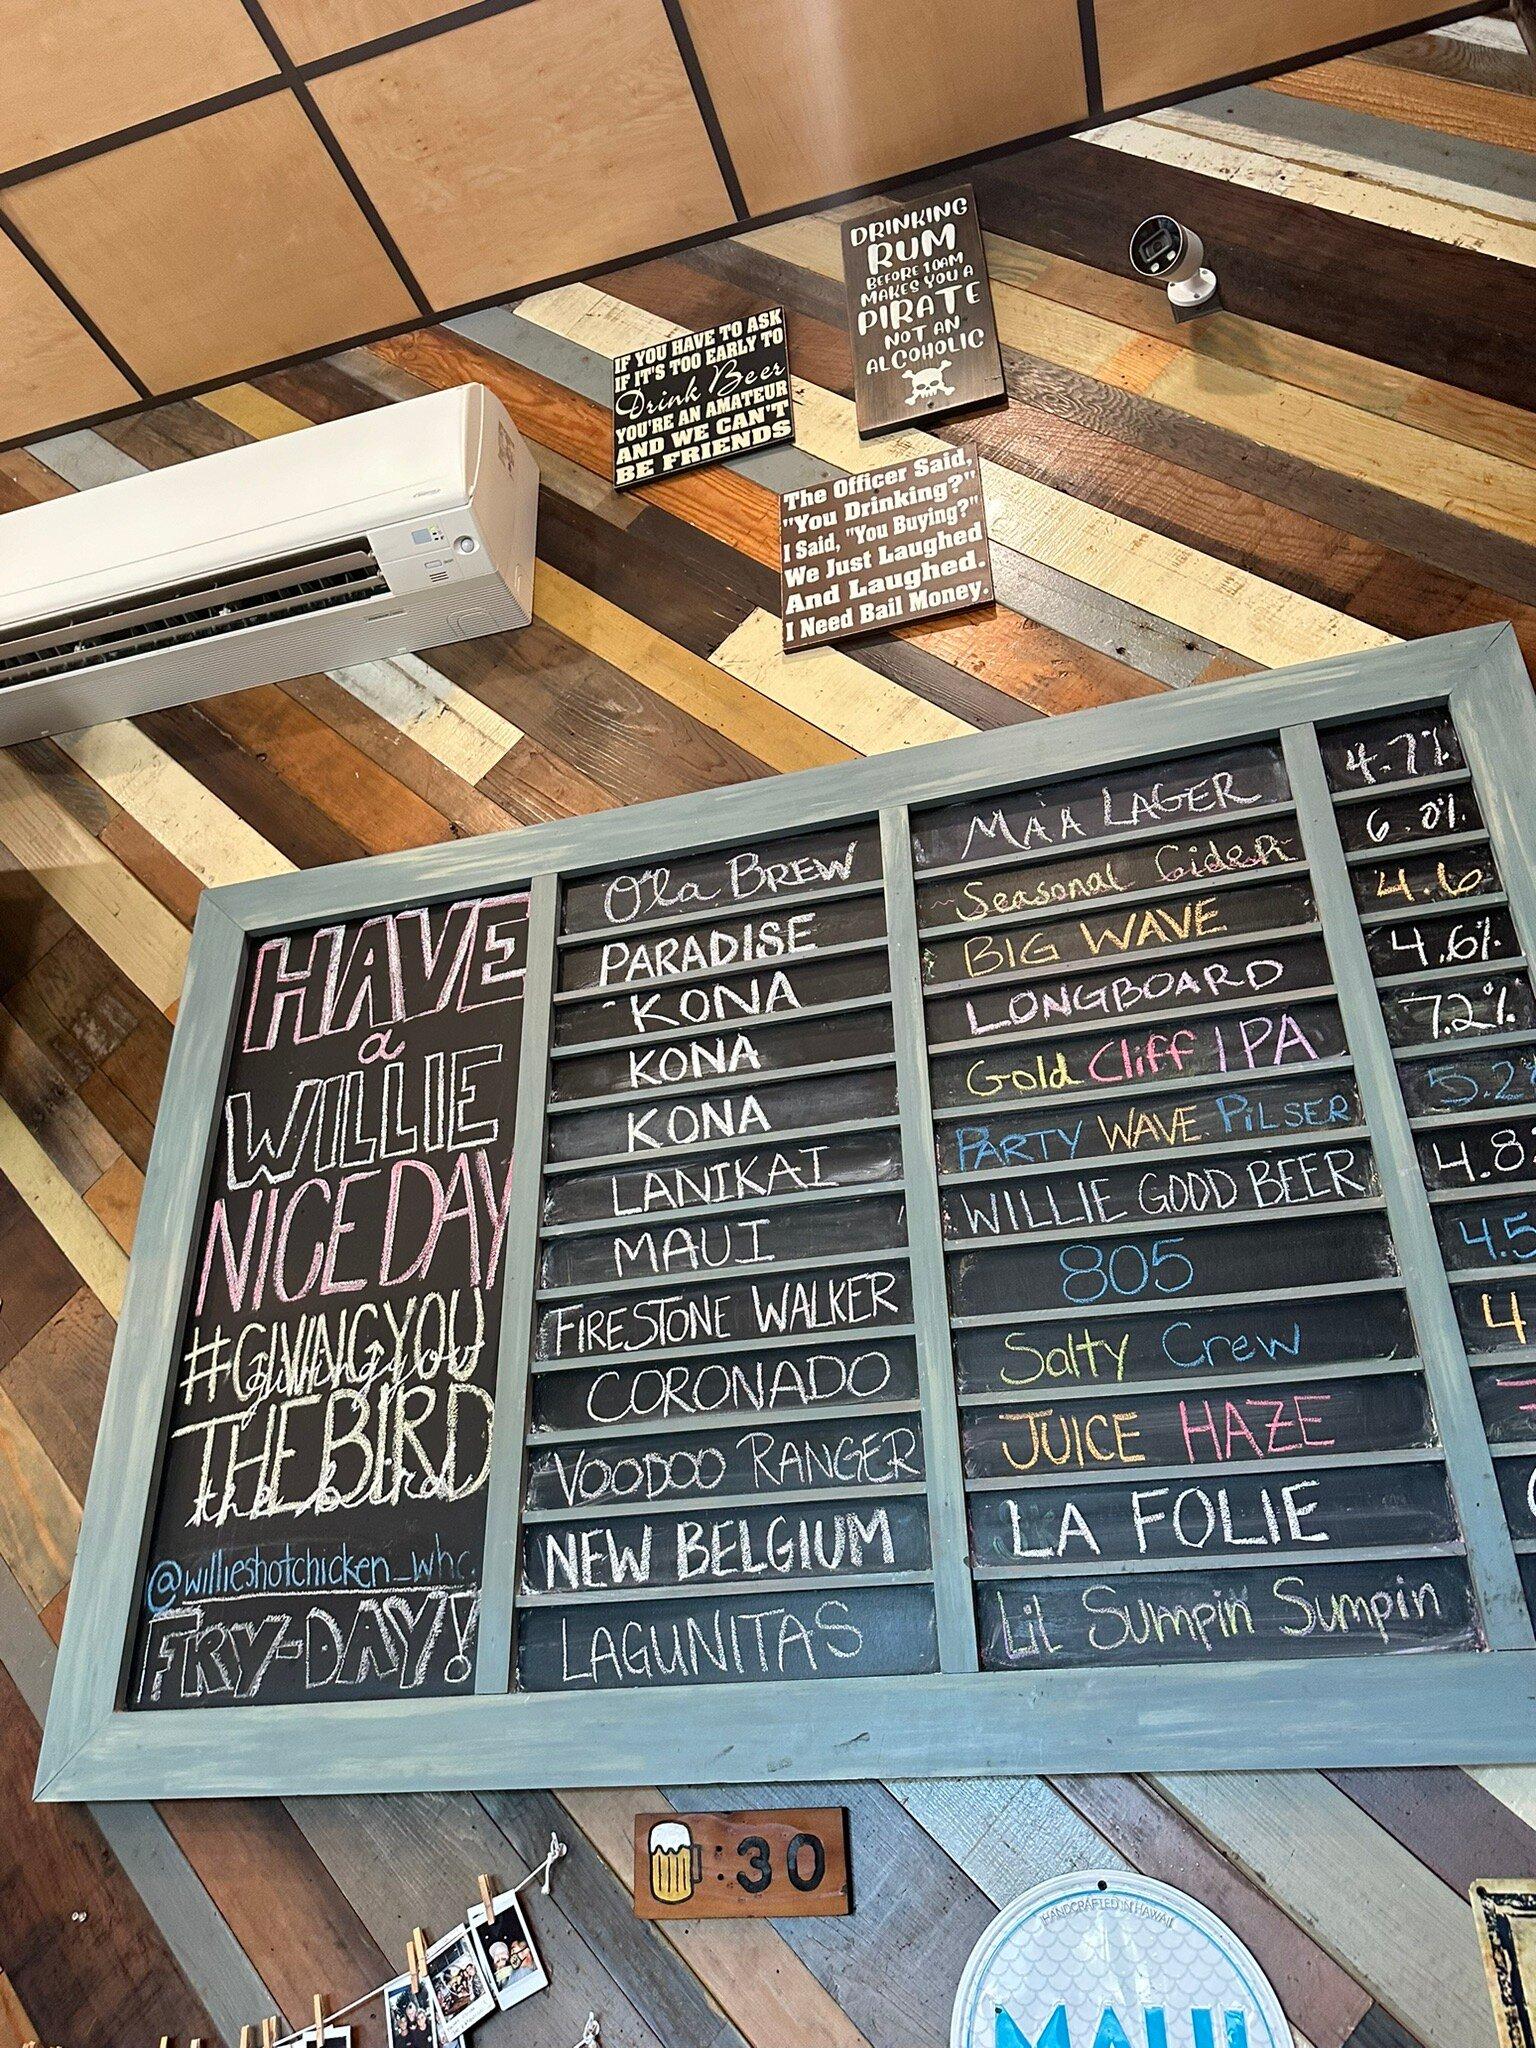 DRINKING
RUM
BEFORE 10AM
MAKES YOU A
PIRATE
NOT AN
ALCOHOLIC
IF YOU HAVE TO ASK
IF IT'S TOO EARLY TO
Drink Beer
YOU'RE AN AMATEUR
AND WE CAN'T
BE FRIENDS
The Officer Said,
"You Drinking?"
I Said, "You Buying?"
We Just Laughed
And Laughed.
I Need Bail Money.
HAVE
a
WILLIE
NICE DAY
#GIVINGYOU
givingyou
THEBIRD
thebird
@willieshotchicken_whc.
FRY-DAY!
Ola BREW MAA LAGER 4.7%
PARADISE Seasonal Cider 6.0%
KONA BIG WAVE 4.6
KONA LONGBOARD 4.6%
KONA Gold Cliff IPA 7.2%
LANIKAI PARTY WAVE PILSER 5.2
MAUI WILLIE GOOD BEER 4.8
FIRESTONE WALKER 805 4.5
CORONADO Salty Crew 4
VOODOO RANGER JUICE HAZE
NEW BELGIUM LA FOLIE
LAGUNITAS Lil Sumpin Sumpin
:30
HANDCRAFTED IN HAWAII
MAUI